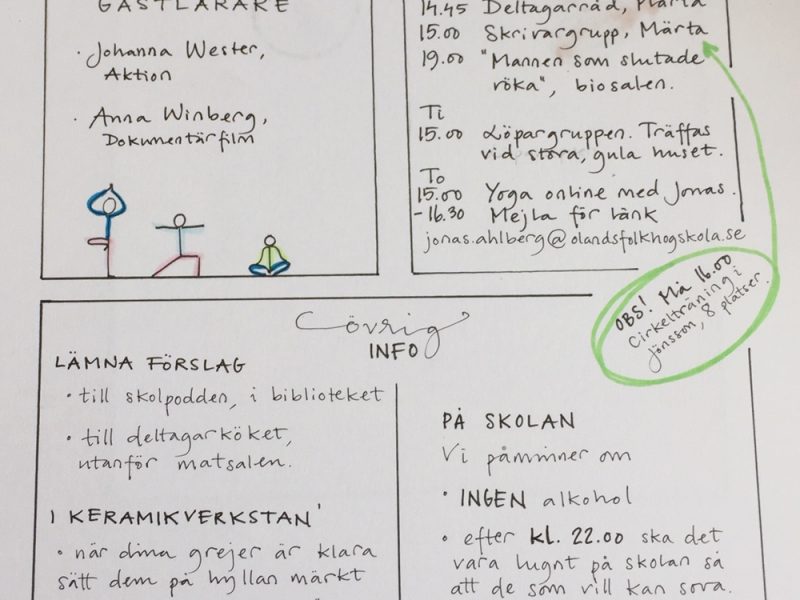 GÄSTLÄRARE
· Johanna Wester,
Aktion
· Anna Winberg,
Dokumentärfilm
14.45 Deltagarråd, Märta
15.00 Skrivargrupp, Märta
19.00 "Mannen som slutade
röka", biosalen.
Ti
15.00 Löpargruppen. Träffas
vid stora, gula huset.
To
15.00 Yoga online med Jonas.
-16.30 Mejla för länk
jonas.ahlberg@olandsfolkhogskola.se
OBS! Må 16.00
Cirkelträning i
Jönsson, 8 platser.
övrig
INFO
LÄMNA FÖRSLAG
· till skolpodden, i biblioteket
· till deltagarköket,
utanför matsalen.
I KERAMIKVERKSTAN'
· när dina grejer är klara
sätt dem på hyllan märkt
PÅ SKOLAN
Vi påminner om
· INGEN alkohol
· efter kl. 22.00 ska det
vara lugnt på skolan så
att de som vill kan sova.